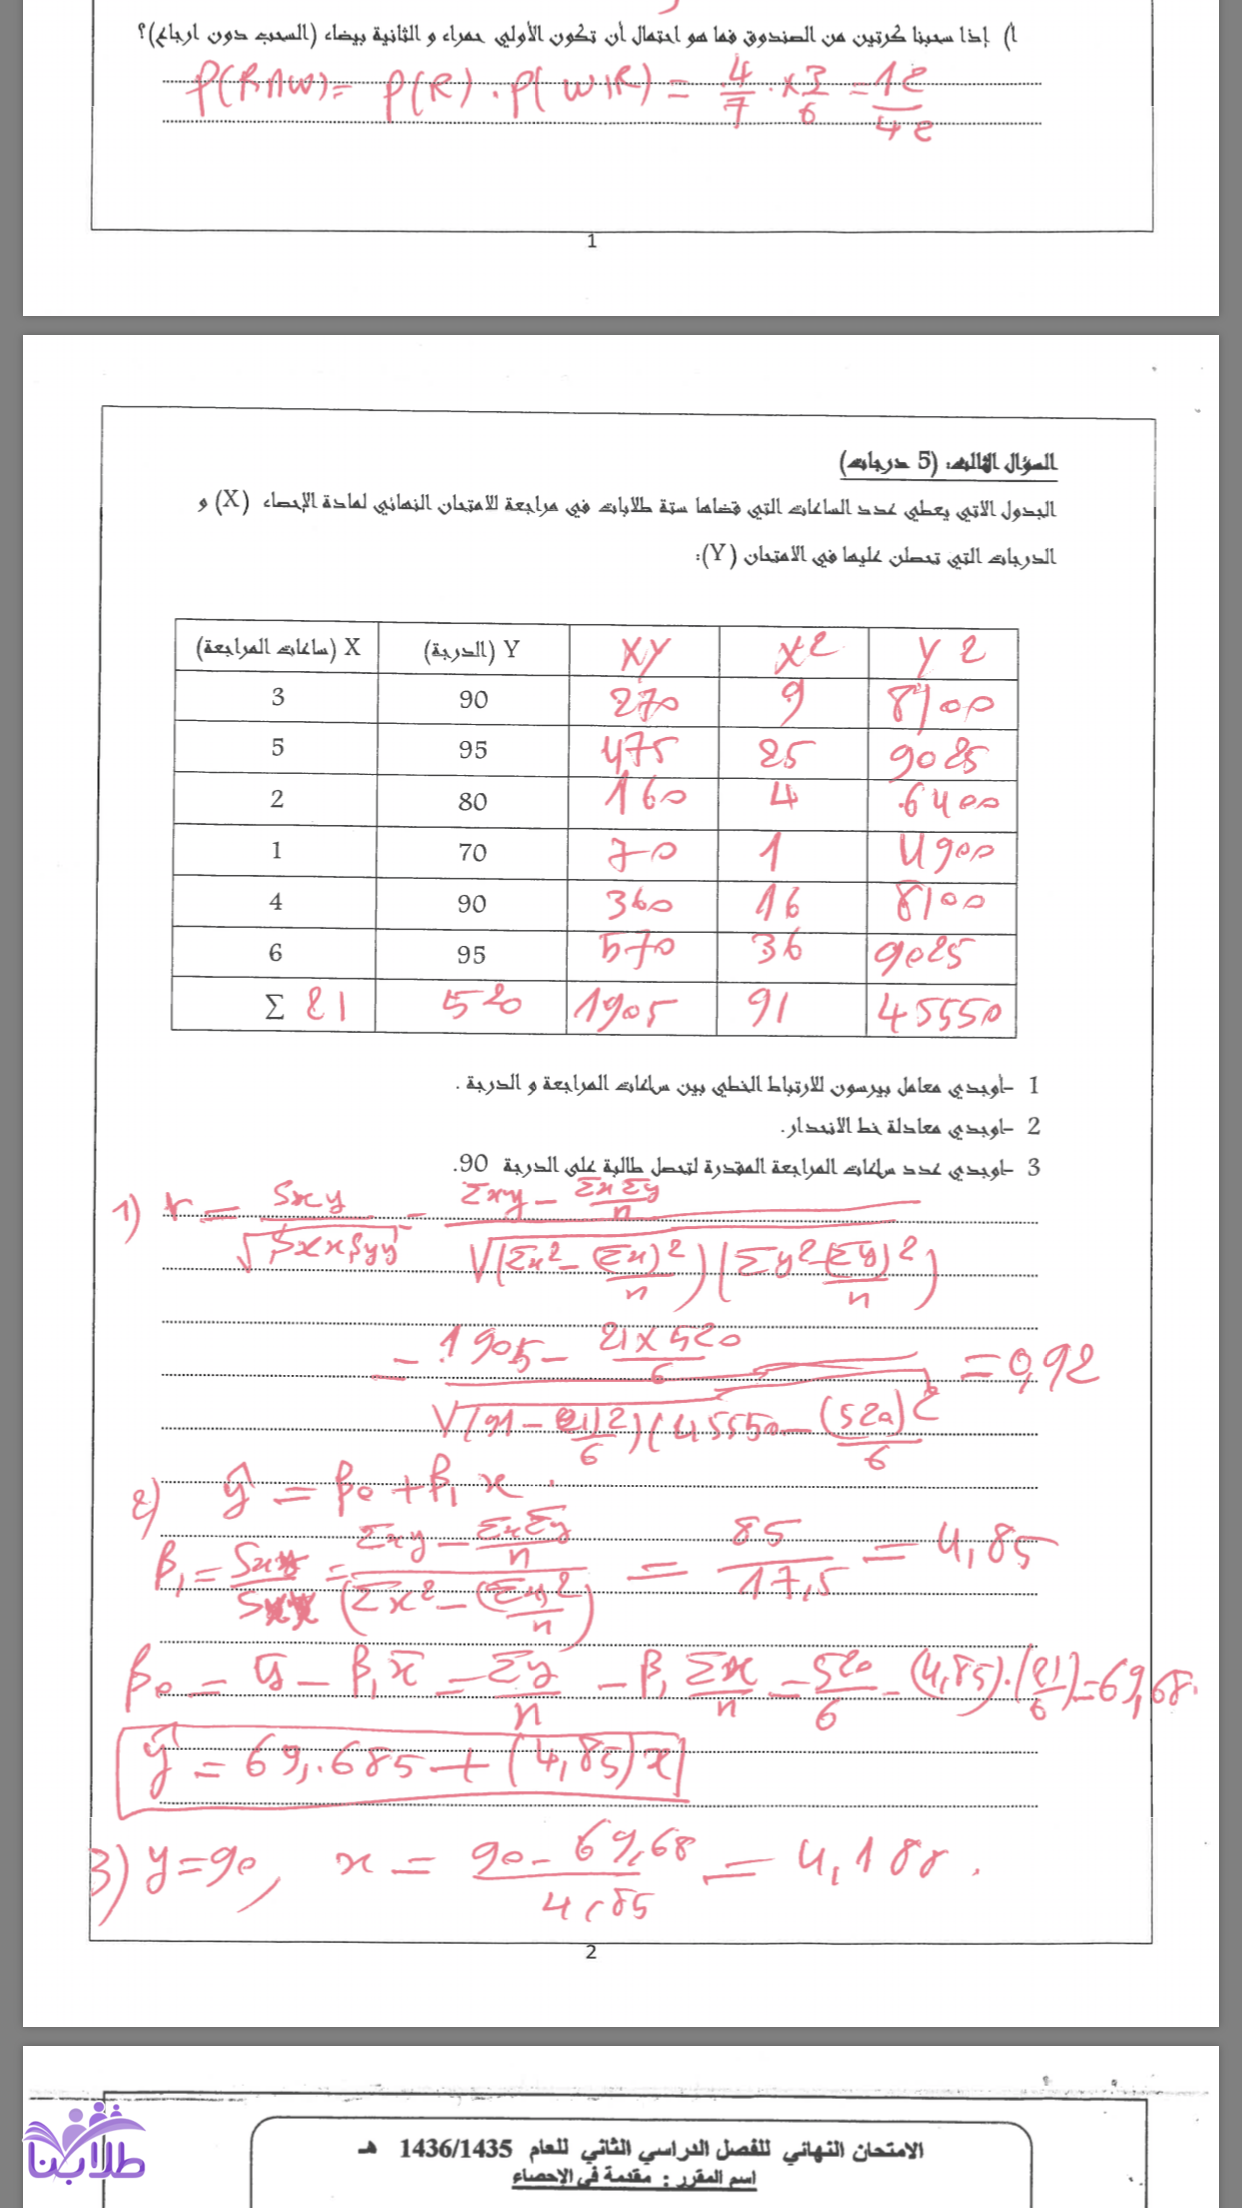 أ) إذا سحبنا كرتين من الصندوق فما هو احتمال أن تكون الأولي حمراء و الثانية بيضاء (السحب دون ارجاع)؟
P(R∩W)= P(R) . P(W|R) = 4/7 . × 3/6 = 12/42
1
السؤال الثالث: (5 درجات)
الجدول الآتي يعطي عدد الساعات التي قضاها ستة طالبات في مراجعة للامتحان النهائي لمادة الإحصاء (X) و
الدرجات التي تحصلن عليها في الامتحان (Y):
X (ساعات المراجعة) Y (الدرجة) XY X2 Y2
3 90 270 9 8100
5 95 475 25 9025
2 80 160 4 6400
1 70 70 1 4900
4 90 360 16 8100
6 95 570 36 9025
Σ 21 520 1905 91 45550
1 -أوجدي معامل بيرسون للارتباط الخطي بين ساعات المراجعة و الدرجة .
2 -اوجدي معادلة خط الانحدار.
3 -اوجدي عدد ساعات المراجعة المقدرة لتحصل طالبة على الدرجة 90.
1) r = Sxy / √(Sxx Syy) = (Σxy - ΣxΣy/n) / √((Σx² - (Σx)²/n)(Σy² - (Σy)²/n))
= (1905 - 21×520/6) / √((91 - (21)²/6)(45550 - (520)²/6)) = 0,92
2) ŷ = β0 + β1 x .
β1 = Sxy/Sxx = (Σxy - ΣxΣy/n) / (Σx² - (Σx)²/n) = 85/17,5 = 4,85
β0 = ȳ - β1 x̄ = Σy/n - β1 Σx/n = 520/6 - (4,85).(21/6) = 69,68.
ŷ = 69,.685 + (4,85)x
3) y=90, x = (90 - 69,68)/4,85 = 4,188 .
2
الامتحان النهائي للفصل الدراسي الثاني للعام 1436/1435 هـ
اسم المقرر : مقدمة في الإحصاء
طلابنا